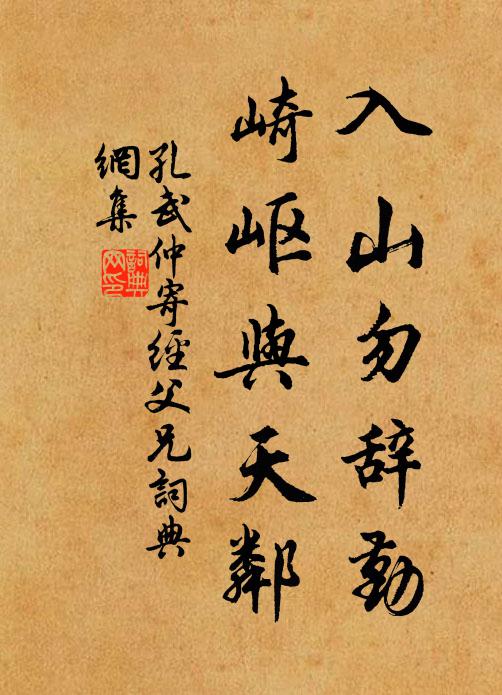 入山勿辞勤
崎岖與天鄰
孔武仲寄經父兄詞典
網集
詞典
网印